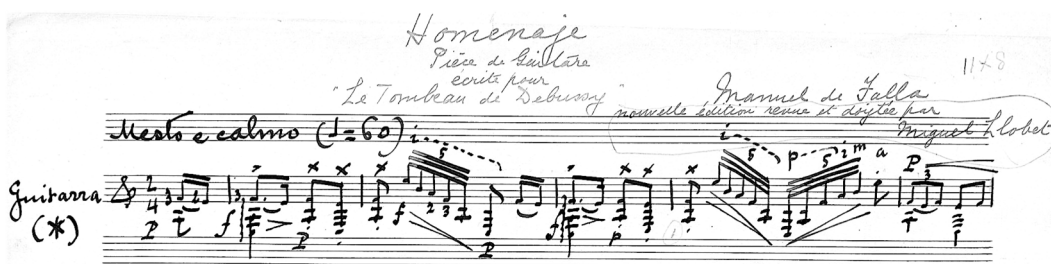 Homenaje
Pièce de Guitare
écrite pour
"Le Tombeau de Debussy"
11x8
Manuel de Falla
nouvelle édition revue et doigtée par
Miguel Llobet
Mesto e calmo (♩=60)
i 5 i 5 p 5 i m a
Guitarra
(*)
2
4
3 3 2 3 3
P f P f P f p P